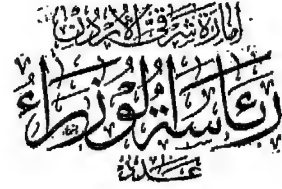 إمارة شرقي الأردن
رئاسة الوزراء
عدد